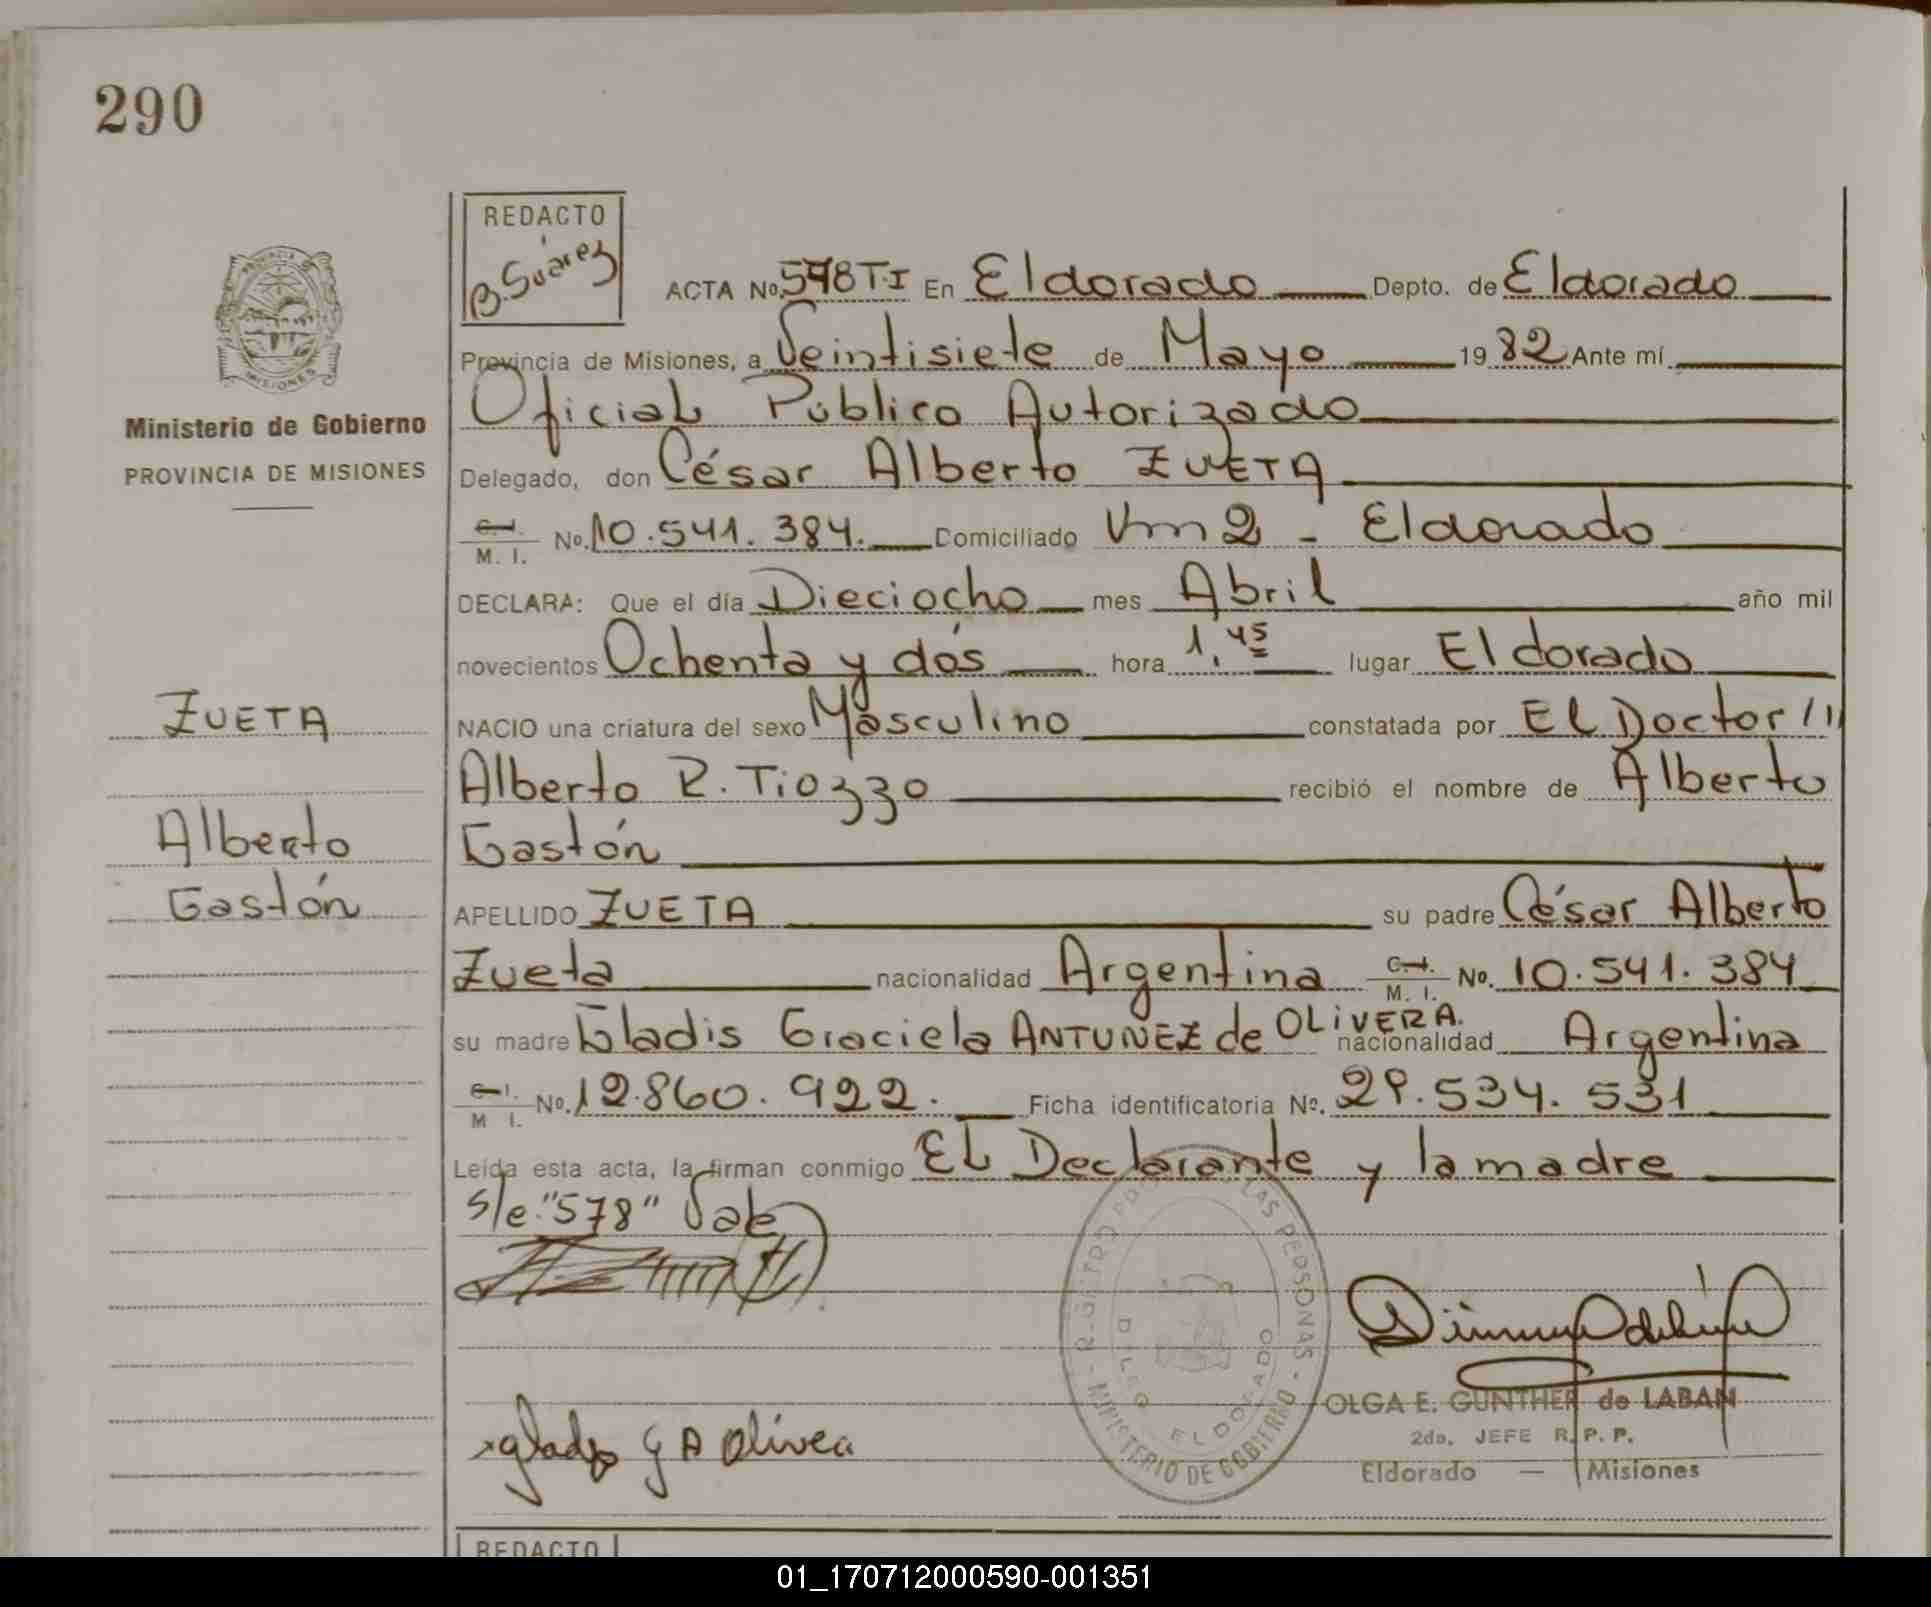 290
REDACTO
B. Suárez
ACTA No. 578 T.I En Eldorado Depto. de Eldorado
Provincia de Misiones, a Veintisiete de Mayo 19 82 Ante mí
Oficial Público Autorizado
Delegado, don César Alberto ZUETA
C.I. M. I. No. 10.541.384. Domiciliado Km 2 - Eldorado
DECLARA: Que el día Dieciocho mes Abril año mil
novecientos Ochenta y dós hora 1,45 lugar Eldorado
NACIO una criatura del sexo Masculino constatada por El Doctor ///
Alberto R. Tiozzo recibió el nombre de Alberto
Gastón
APELLIDO ZUETA su padre César Alberto
Zueta nacionalidad Argentina C.I. M. I. No. 10.541.384
su madre Gladis Graciela ANTUNEZ de OLIVERA. nacionalidad Argentina
C.I. M I. No. 12.860.922. Ficha identificatoria Nº. 29.534.531
Leída esta acta, la firman conmigo El Declarante y la madre
s/e: "578" Vale
Ministerio de Gobierno
PROVINCIA DE MISIONES
ZUETA
Alberto
Gastón
PROVINCIA
MISIONES
LAS PERSONAS - MINISTERIO DE GOBIERNO -
ELDORADO
OLGA E. GUNTHER de LABAN
2da. JEFE R. P. P.
Eldorado — Misiones
G A Olivea
REDACTO
01_170712000590-001351